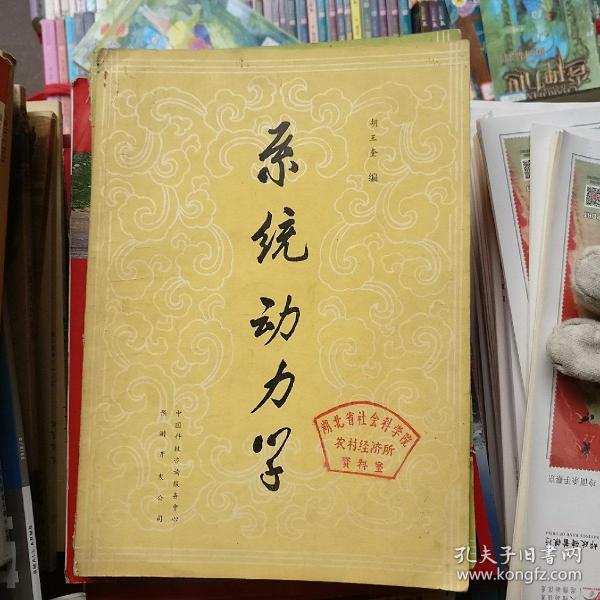 系统动力学
胡玉奎 编
中国科技咨询服务中心
预测开发公司
湖北省社会科学院
农村经济所
资料室
孔夫子旧书网
www.kongfz.com